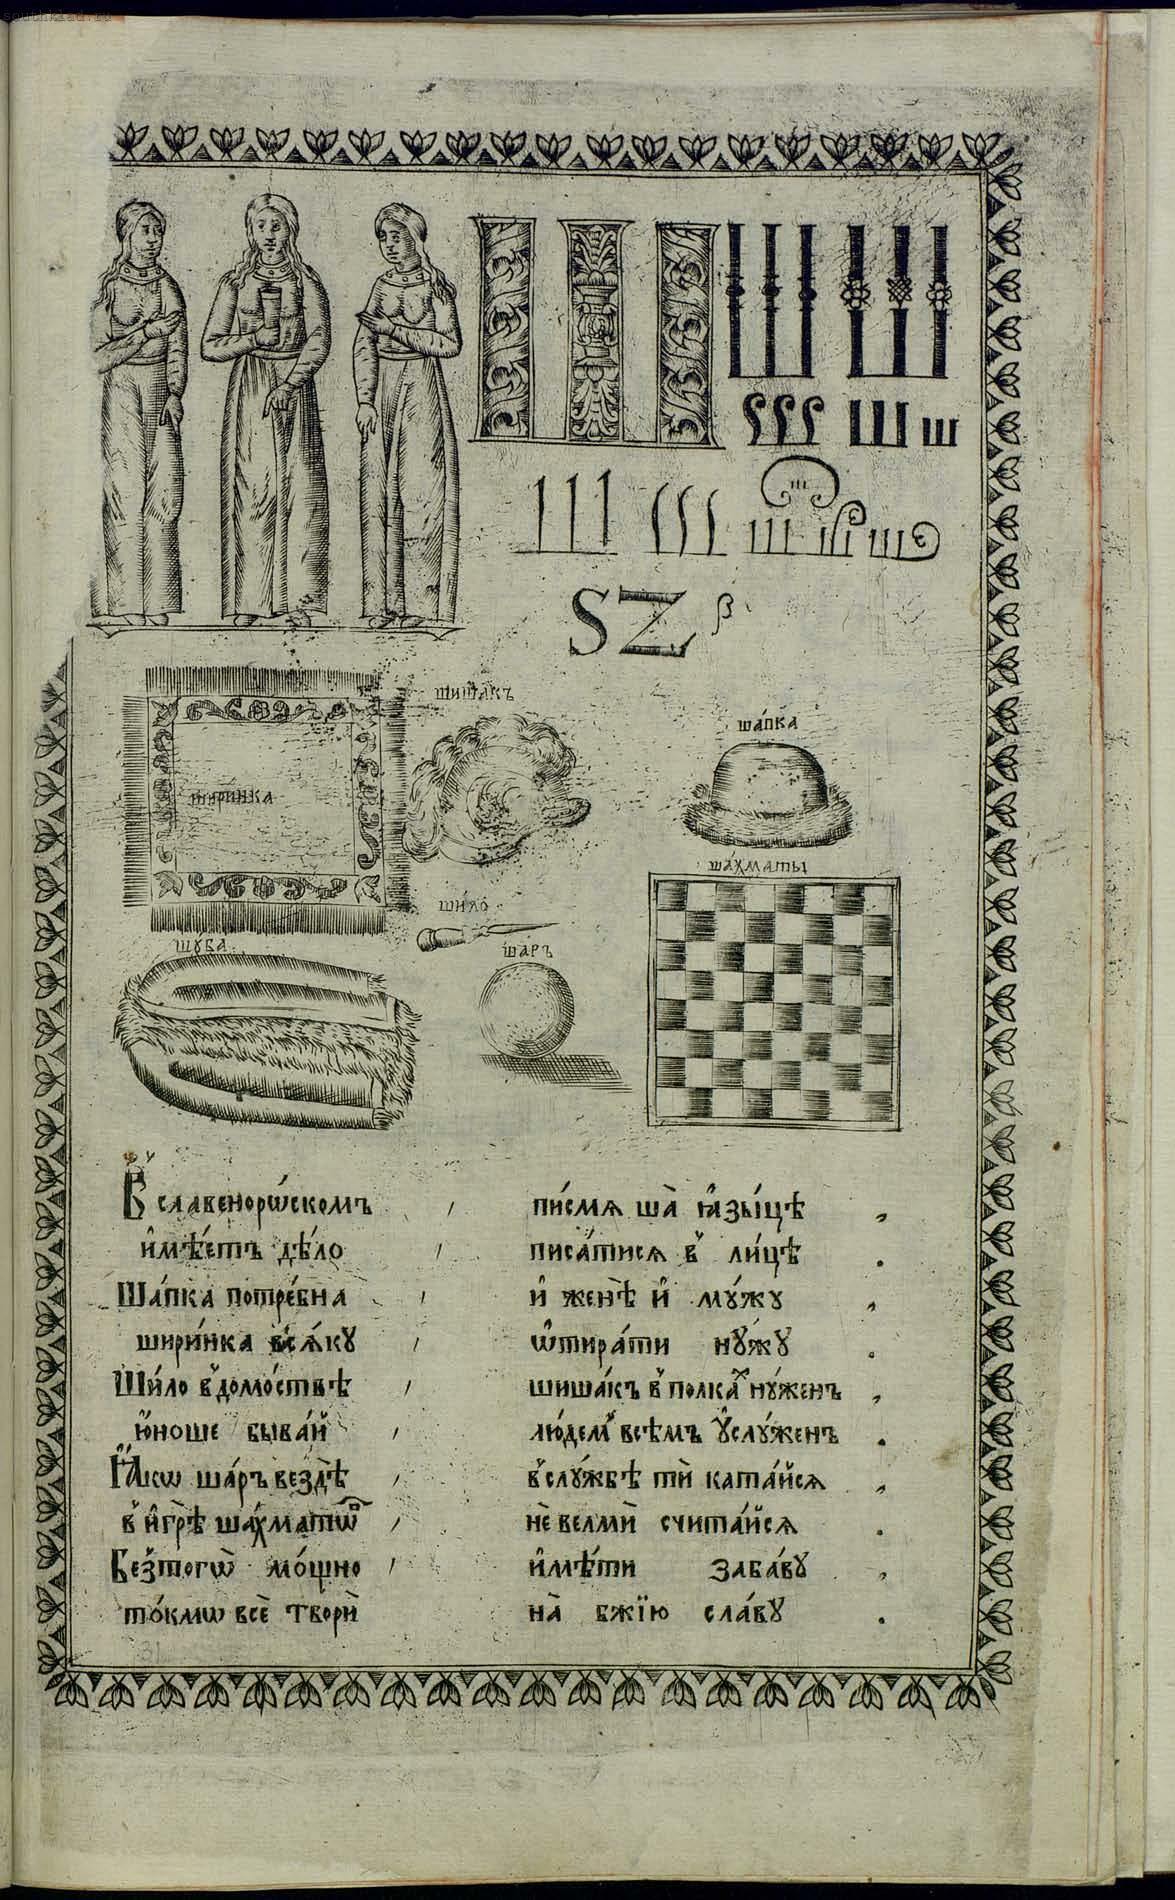 southklad.ru
Ш Ш Ш Ш
Ш Ш Ш Ш Ш Ш
SZ β
шиша́къ
ша́пка
шири́нка
ша́хматы
ши́ло
шу́ба
ша́ръ
В славенорѡ́скомъ , пи́смѧ ша̀ ꙗ҆зы́цѣ ,
и҆мѣ́етъ дѣ́ло , писа́тисѧ в̾ ли́цѣ .
Ша́пка потре́бна , и҆ женѣ̀ и҆ мꙋ́жꙋ ,
шири́нка всѧ́кꙋ , ѿтира́ти нꙋ́жꙋ .
Ши́ло в̾ домо́вствѣ , шиша́къ в̾ полка́ⷯ нꙋ́женъ ,
ю҆́ноше быва́й , лю́дем̾ всѣ̑мъ ᲂу҆слꙋ́женъ .
Ꙗ҆́кѡ ша́ръ вездѣ̀ , в̾ слꙋ́жбѣ ти̑ ката́йсѧ ,
в̾ и҆грѣ̀ ша́хматѡⷡ , не̑ велми̑ счита́йсѧ .
Без̾ тогѡ̀ мо́щно , и҆мѣ́ти заба́вꙋ ,
то́кмѡ всѐ твори̑ , на̑ бж҃їю сла́вꙋ .
31